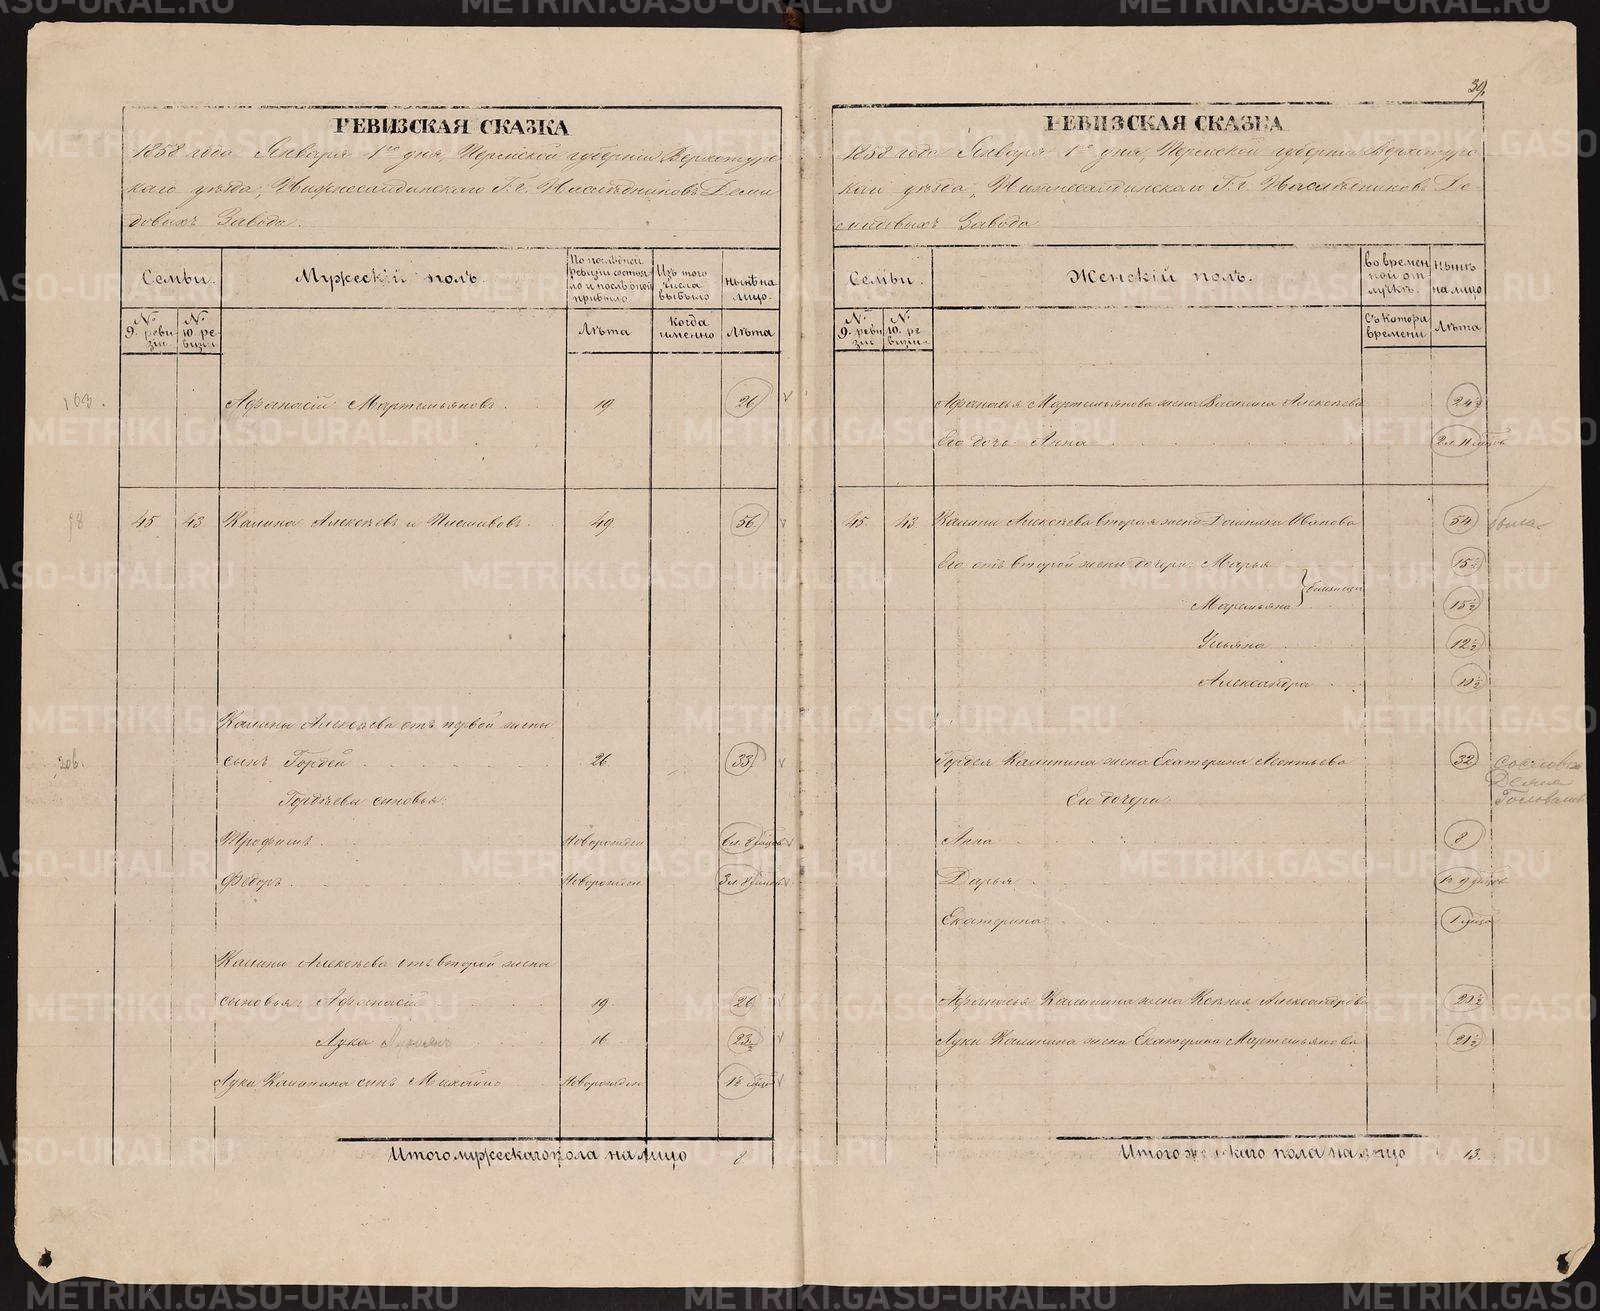 39.
РЕВИЗСКАЯ СКАЗКА
1858 года Января 1го дня, Пермской губернiи Верхотурс
каго уѣзда, Нижнесалдинскаго Г.г. Наслѣдниковъ Деми
довыхъ Завода.
Семьи.
Мужескiй полъ.
По послѣдней ревизiи состояло и послѣ оной прибыло
Изъ того числа выбыло
Нынѣ на лицо.
№ 9. ревизiи
№ 10. ревизiи
Лѣта
Когда именно
Лѣта
103.
Афанасiй Мартемьяновъ 19 26
98 45 43 Калина Алексѣевъ 49 56
Калины Алексѣева отъ первой жены
206. сынъ Гордей 26 33
Гордѣевы сыновья:
Трофимъ Новорожден 6 л. 8 мѣцов
Федоръ Новорожден 3 л. 8 мѣцов
Калины Алексѣева отъ второй жены
сыновья: Афанасiй 19 26
Лука 16 23½
Луки Калинина сынъ Михайло Новорожден
Итого мужескаго пола на лицо 8.
РЕВИЗСКАЯ СКАЗКА
1858 года Января 1го дня, Пермской губернiи Верхотурс
каго уѣзда, Нижнесалдинскаго Г.г. Наслѣдниковъ Де
мидовыхъ Завода
Семьи.
Женскiй полъ.
Во временной отлучкѣ.
Нынѣ на лицо
№ 9. ревизiи
№ 10. ревизiи
Съ котора времени
Лѣта
Афанасья Мартемьянова жена Василиса Алексѣева 24½
Его дочь Анна 2 л. 11 мѣцов
45 43 Калины Алексѣева вторая жена Домника Иванова 54
Его отъ второй жены дочери: Марья 15½
близнецы
Маремьяна 15½
Ульяна 12½
Александра 10½
Гордея Калинина жена Екатерина Леонтьева 32
Его дочери:
Анна 8
Дарья
Екатерина 1 мѣсц
Афанасья Калинина жена Ксенья Александрова 20½
Луки Калинина жена Екатерина Мартемьянова 21½
Итого женскаго пола на лицо 13.
METRIKI.GASO-URAL.RU